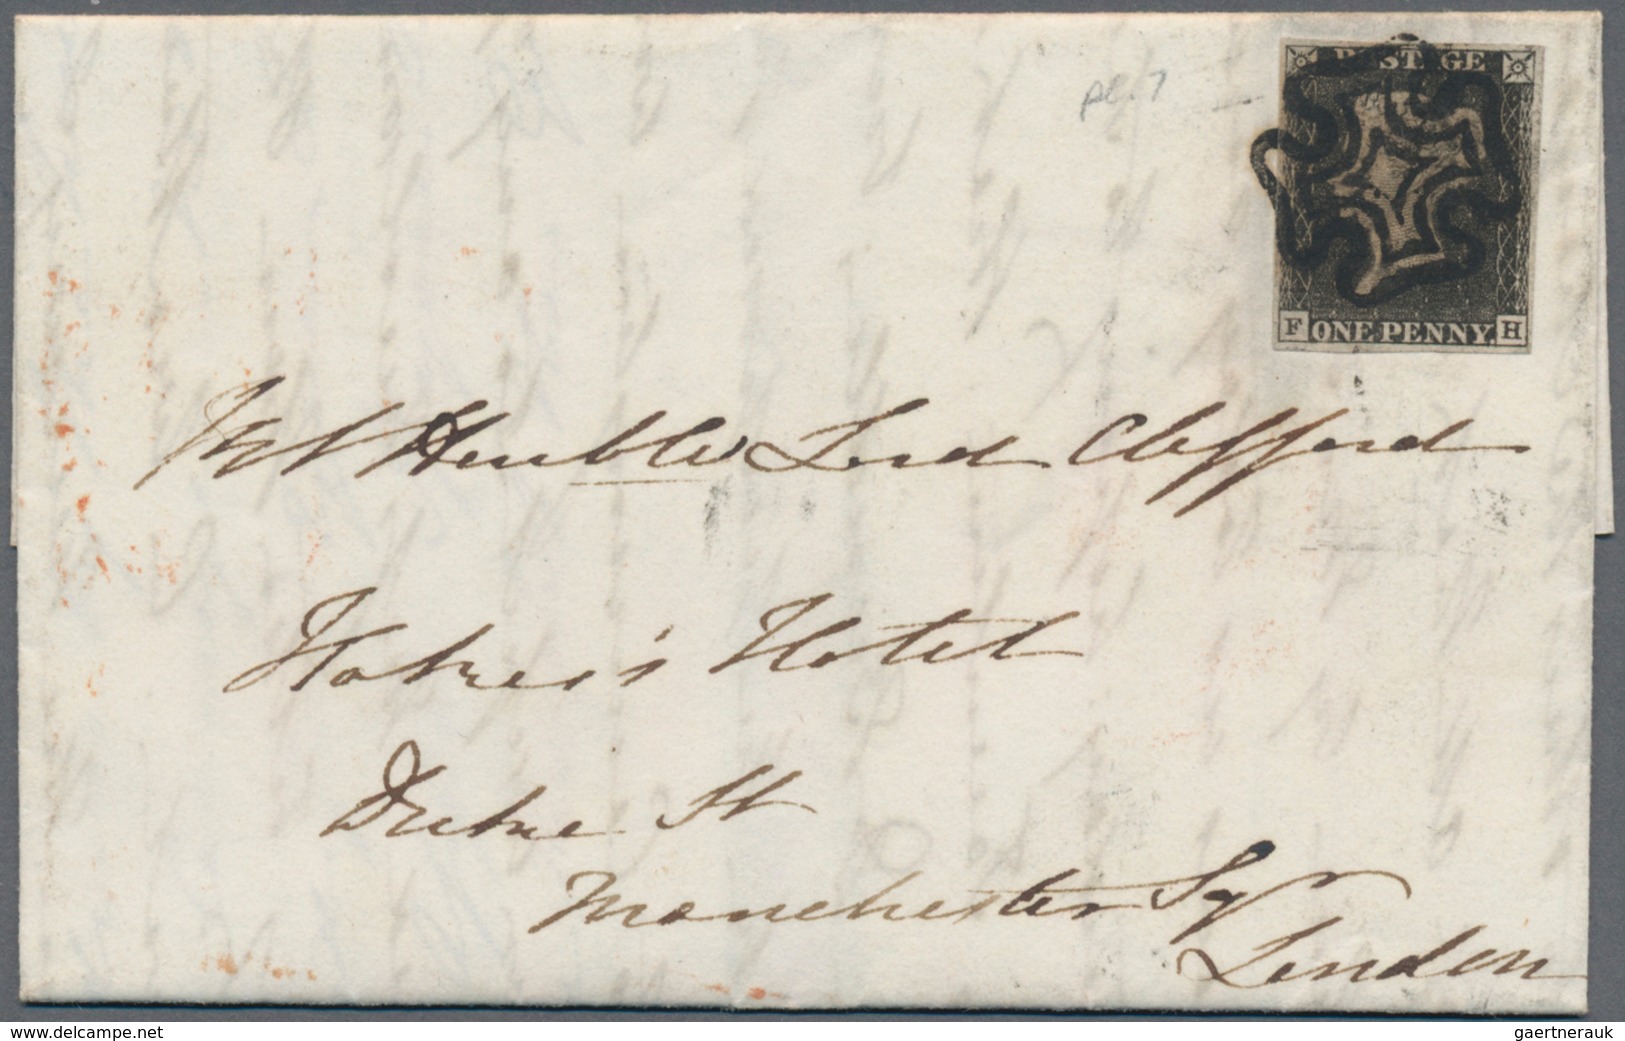 pl. 7
POSTAGE
F ONE PENNY. H
Honble Lord Clifford
Hotel
Duke St
Manchester Sq
London
www.delcampe.net
gaertnerauk